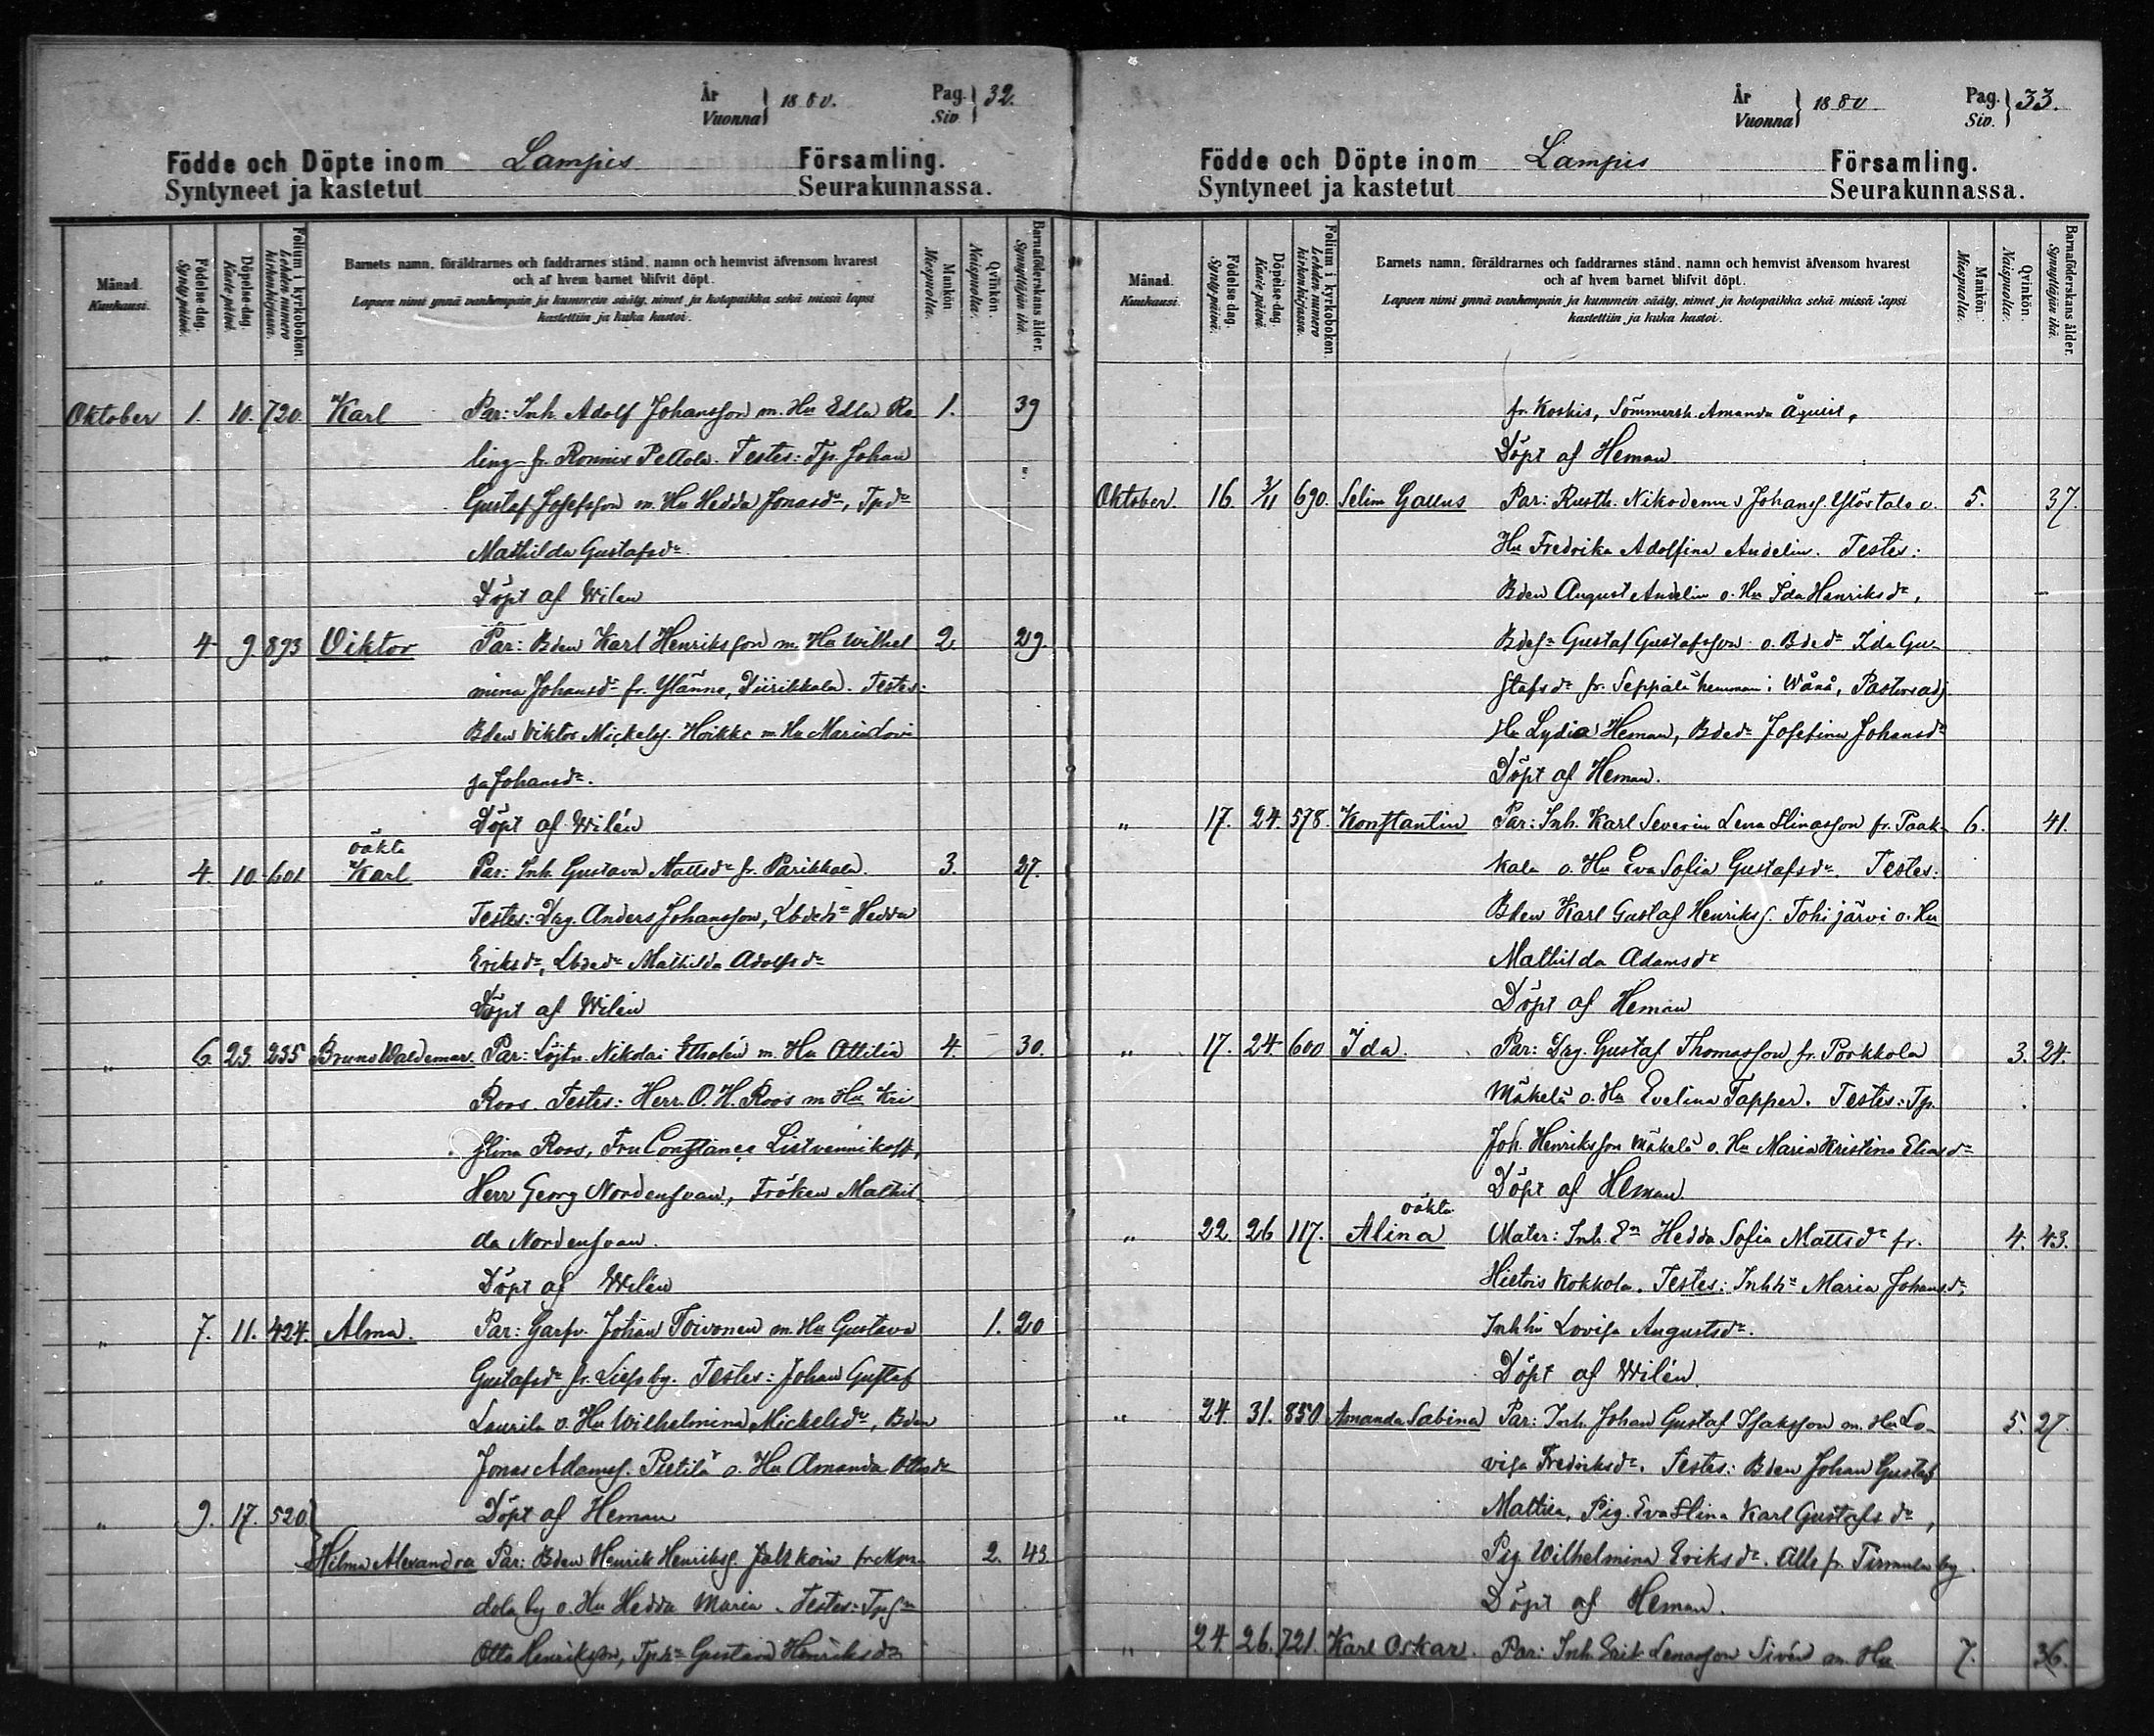 År Vuonna } 1880. Pag. Siv. } 32.
Födde och Döpte inom Lampis Församling.
Syntyneet ja kastetut Seurakunnassa.
Månad. Kuukausi.
Födelse-dag. Synty päivä.
Döpelse-dag. Kaste päivä.
Folium i kyrkoboken. Lehden numero kirkonkirjassa.
Barnets namn, föräldrarnes och faddrarnes stånd, namn och hemvist äfvensom hvarest
och af hvem barnet blifvit döpt.
Lapsen nimi ynnä vanhempain ja kummein sääty, nimet ja kotopaikka sekä missä lapsi
kastettiin ja kuka kastoi.
Mankön. Miespuolia.
Qvinkön. Naispuolia.
Barnaföderskans ålder. Synnyttäjän ikä.
Oktober 1. 10. 720. Karl Par: Inh. Adolf Johansson m. Hu Edla Ro- 1. 39
ling fr. Ronnis Peltola. Testes: Tp. Johan
Gustaf Josefsson m. Hu Hedda Jonasdr, Tpdr
Mathilda Gustafsdr
Döpt af Wilen
" 4 9. 893 Viktor Par: Bden Karl Henriksson m. Hu Wilhel 2. 29.
mina Johansdr fr. Ylänne, Testes:
Bden Viktor Mickelss. Hoikka m Hu Maria Lovi
sa Johansdr.
Döpt af Wilén
oäkta
" 4. 10. 601 Karl Par: Inh. Gustava Mattsdr fr. Parikkala. 3. 27.
Testes: Drg. Anders Johansson, Hedda
Eriksdr, Mathilda Adolfsdr
Döpt af Wilén
" 6 23. 235 Bruno Waldemar. Par: Löjtn. Nikolai Etholén m. Hu Ottilia 4. 30.
Roos. Testes: Herr O. H. Roos m Hu Kri
stina Roos, Fru Constance Listvennikoff,
Herr Georg Nordensvan, Fröken Mathil
da Nordensvan.
Döpt af Wilén
" 7. 11. 424. Alma. Par: Garfv. Johan Toivonen m. Hu Gustava 1. 20
Gustafsdr fr. Testes: Johan Gustaf
Laurila o. Hu Wilhelmina Mickelsdr, Bden
Jonas Adamss. Pietilä o. Hu Amanda Ottosdr
" 9. 17. 520. Döpt af Heman
Hilma Alexandra Par: Bden Henrik Henrikss. fr. 2. 43
dola by o. Hu Hedda Maria. Testes:
Otto Henriksson, Gustava Henriksdr
År Vuonna } 1880 Pag. Siv. } 33.
Födde och Döpte inom Lampis Församling.
Syntyneet ja kastetut Seurakunnassa.
Månad. Kuukausi.
Födelse-dag. Synty päivä.
Döpelse-dag. Kaste päivä.
Folium i kyrkoboken. Lehden numero kirkonkirjassa.
Barnets namn, föräldrarnes och faddrarnes stånd, namn och hemvist äfvensom hvarest
och af hvem barnet blifvit döpt.
Lapsen nimi ynnä vanhempain ja kummein sääty, nimet ja kotopaikka sekä missä lapsi
kastettiin ja kuka kastoi.
Mankön. Miespuolia.
Qvinkön. Naispuolia.
Barnaföderskans ålder. Synnyttäjän ikä.
fr. Koskis, Sömmersk. Amanda Åquist,
Döpt af Heman
Oktober. 16. 3/11 690. Selim Gallus Par: Rusth. Nikodemus Johanss. Ylöstalo o. 5. 37.
Hu Fredrika Adolfina Andelin. Testes:
Bden August Andelin o. Hu Ida Henriksdr,
Gustaf Gustafsson o. Bdedr Ida Gu-
stafsdr fr. Seppälä hemman i Wånå, Pastorsadj
Hu Lydia Heman, Bdedr Josefina Johansdr
Döpt af Heman.
" 17. 24. 578. Konstantin Par: Inh. Karl Severin Lena Stinasson fr. Paak- 6. 41.
kala o. Hu Eva Sofia Gustafsdr. Testes:
Bden Karl Gustaf Henrikss. Tohijärvi o. Hu
Mathilda Adamsdr
Döpt af Heman
" 17. 24. 600 Ida. Par: Drg. Gustaf Thomasson fr. Porkkola 3. 24.
Mäkelä o. Hu Evelina Tapper. Testes: Tp.
Joh. Henriksson Mäkelä o. Hu Maria Kristina Eliasdr
Döpt af Heman
oäkta
" 22 26 117. Alina Mater: Inh. En Hedda Sofia Mattsdr fr. 4. 43.
Hietois Kokkola. Testes: Maria Johansdr,
Lovisa Augustsdr.
Döpt af Wilén.
" 24. 31. 850 Amanda Sabina Par: Inh. Johan Gustaf Isaksson m. Hu Lo- 5. 27.
visa Fredriksdr. Testes: Bden Johan Gustaf
Mattila, Pig. Eva Stina Karl Gustafsdr,
Pig Wilhelmina Eriksdr. Alla fr. Tirmula by.
Döpt af Heman.
" 24. 26. 721. Karl Oskar. Par: Inh. Erik Lenasson Sivén m. Hu 7. 36.